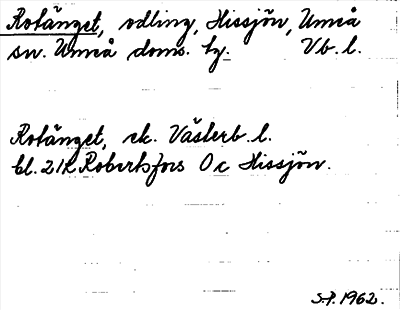 Rotänget, odling, Hissjön, Umeå
sn. Umeå doms. hg. Vb. l.
Rotänget, ek. Västerb. l.
bl. 21K Robertsfors 0c Hissjön.
S.P. 1962.